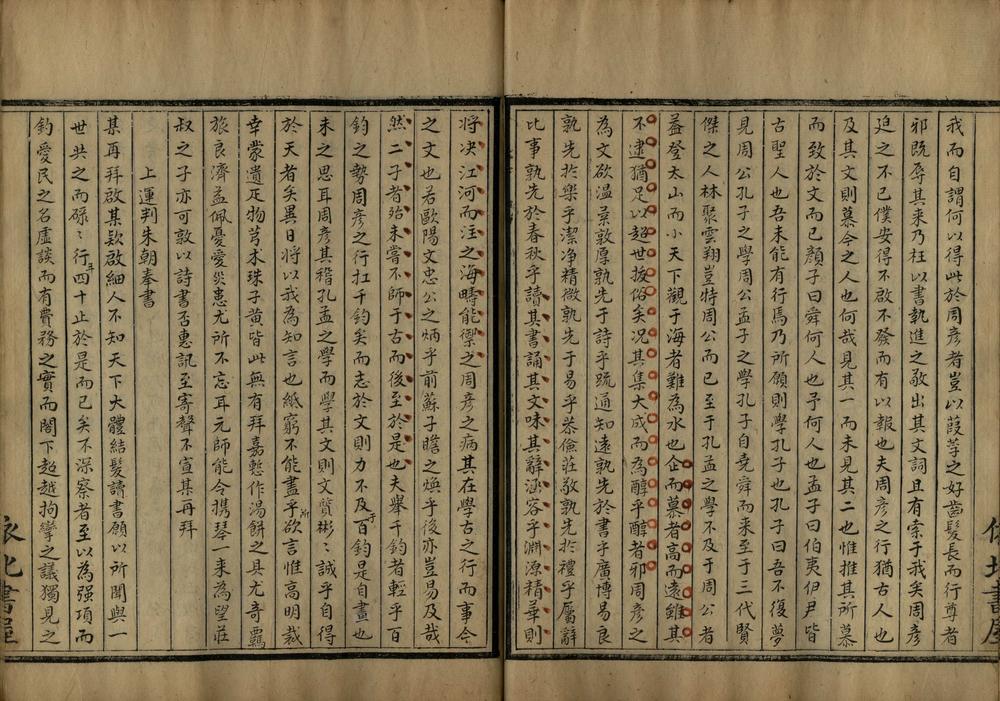 我而自謂何以得此於周彥者豈以葭莩之好齒髮長而行尊者
邪既辱其来乃枉以書執進之敬出其文詞且有索于我矣周彥
迫之不已僕安得不啟不發而有以報也夫周彥之行猶古人也
及其文則慕今之人也何哉見其一而未見其二也惟推其所慕
而致於文而已顏子曰舜何人也予何人也孟子曰伯夷伊尹皆
古聖人也吾未能有行焉乃所願則學孔子也孔子曰吾不復夢
見周公孔子之學周公孟子之學孔子自堯舜而来至于三代賢
傑之人林聚雲翔豈特周公而已至于孔孟之學不及于周公者
蓋登太山而小天下觀于海者難為水也企而慕者高而遠雖其
不逮猶足以超世拔俗矣况其集大成而為醇乎醇者邪周彥之
為文欲温柔敦厚孰先于詩乎疏通知遠孰先於書乎廣博易良
孰先於樂乎潔净精微孰先于易乎恭儉莊敬孰先於禮乎屬辭
比事孰先於春秋乎讀其書誦其文味其辭涵容乎淵源精華則
將决江河而注之海疇能禦之周彥之病其在學古之行而事今
之文也若歐陽文忠公之炳乎前蘇子瞻之煥乎後亦豈易及哉
然二子者殆未嘗不師于古而後至於是也夫舉千鈞者輕乎百
鈞之勢周彥之行扛千鈞矣而志於文則力不及于百鈞是自畫也
未之思耳周彥其稽孔孟之學而學其文則文質彬彬誠乎自得
於天者矣異日將以我為知言也紙窮不能盡乎所欲言惟高明裁
幸蒙遺疋物芎术珠子黄皆此無有拜嘉慙作湯餅之具尤奇羈
旅良濟益佩憂愛災患尤所不忘耳元師能令携琴一来為望莊
叔之子亦可敦以詩書否惠訊至寄聲不宣某再拜
上運判朱朝奉書
某再拜啟某欵啟細人不知天下大體結髮讀書願以所聞與一
世共之而碌碌行年四十止於是而已矣不深察者至以為强項而
釣愛民之名虛談而有費務之實而閣下超越拘攣之議獨見之